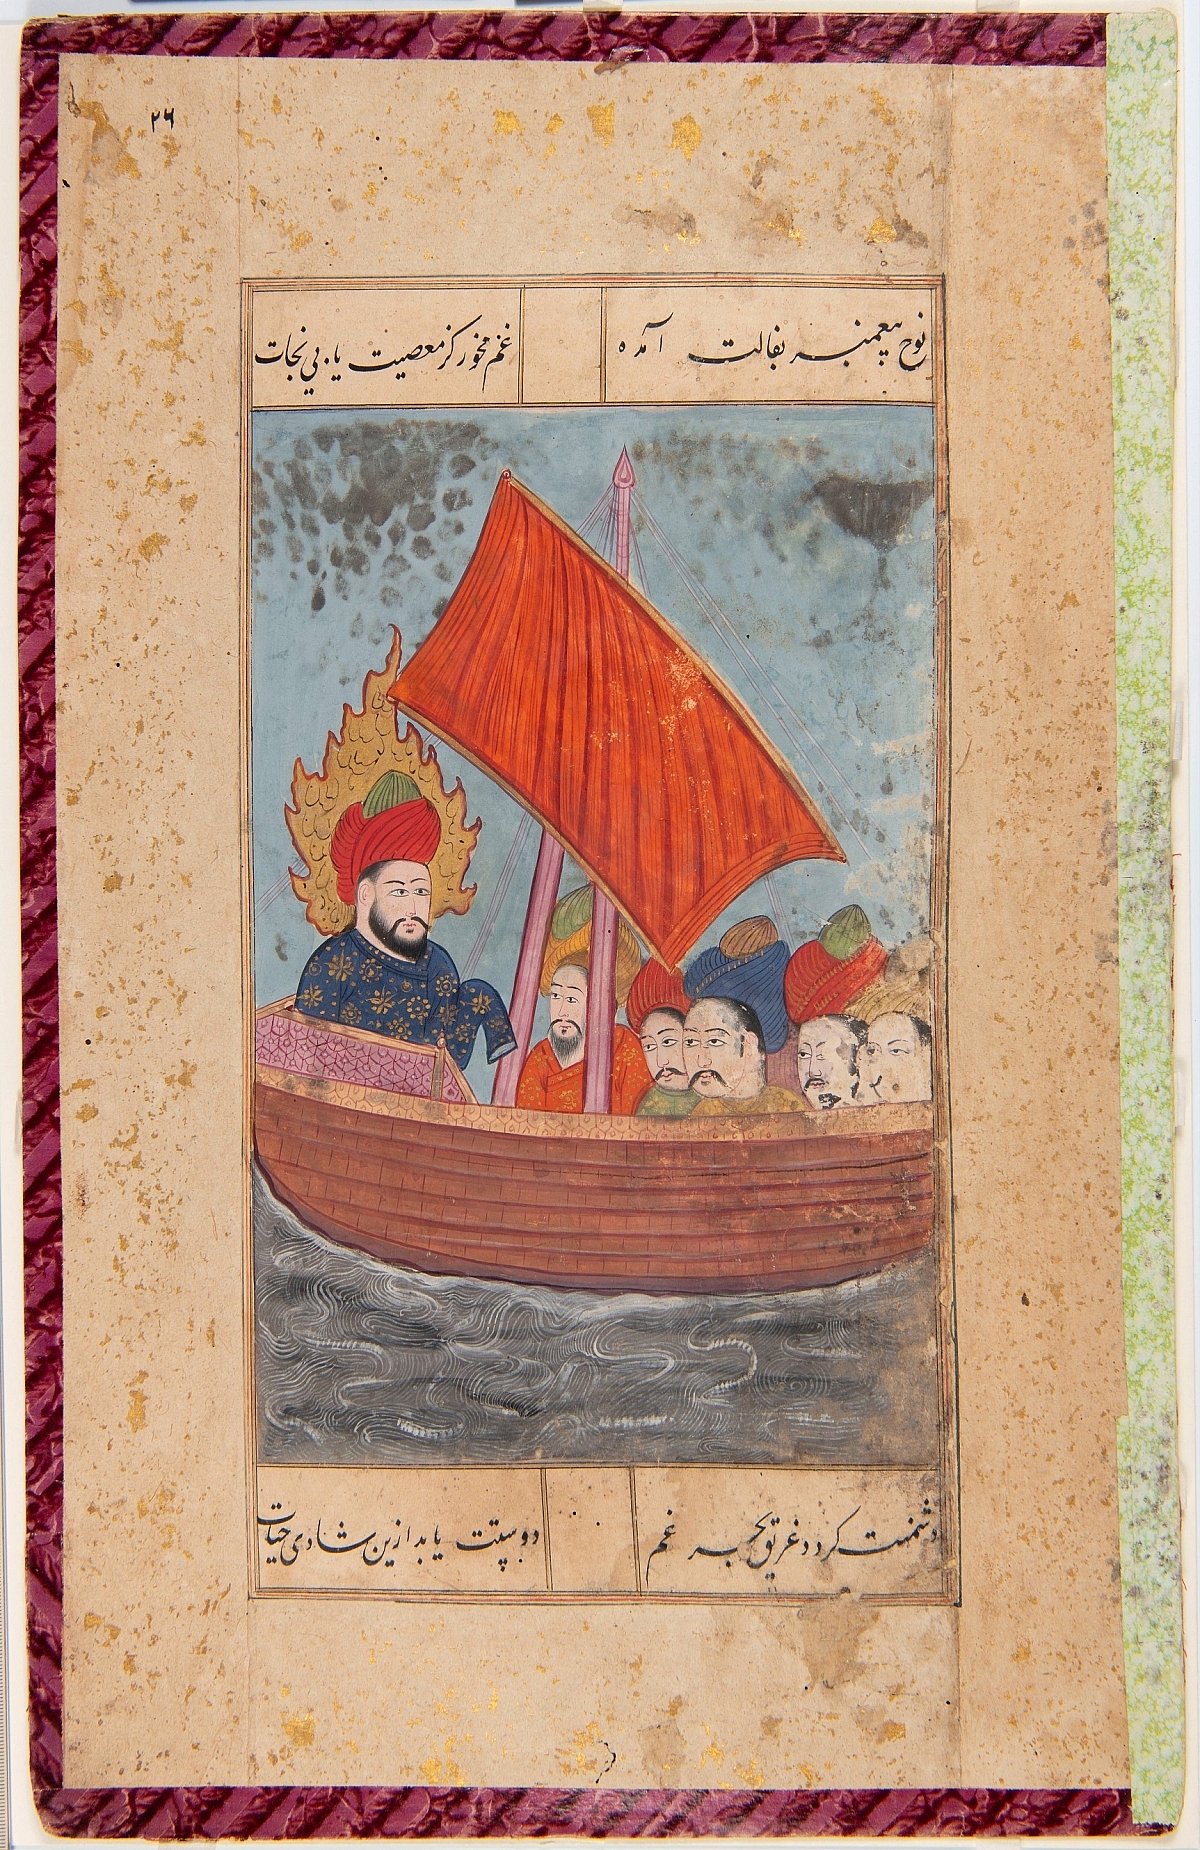 ۲۶
نوح پیغمبر بفالت آمده
غم مخور کز معصیت یابی نجات
دشمنت کردد غریق بحر غم
دوستت یابد ازین شادی حیات